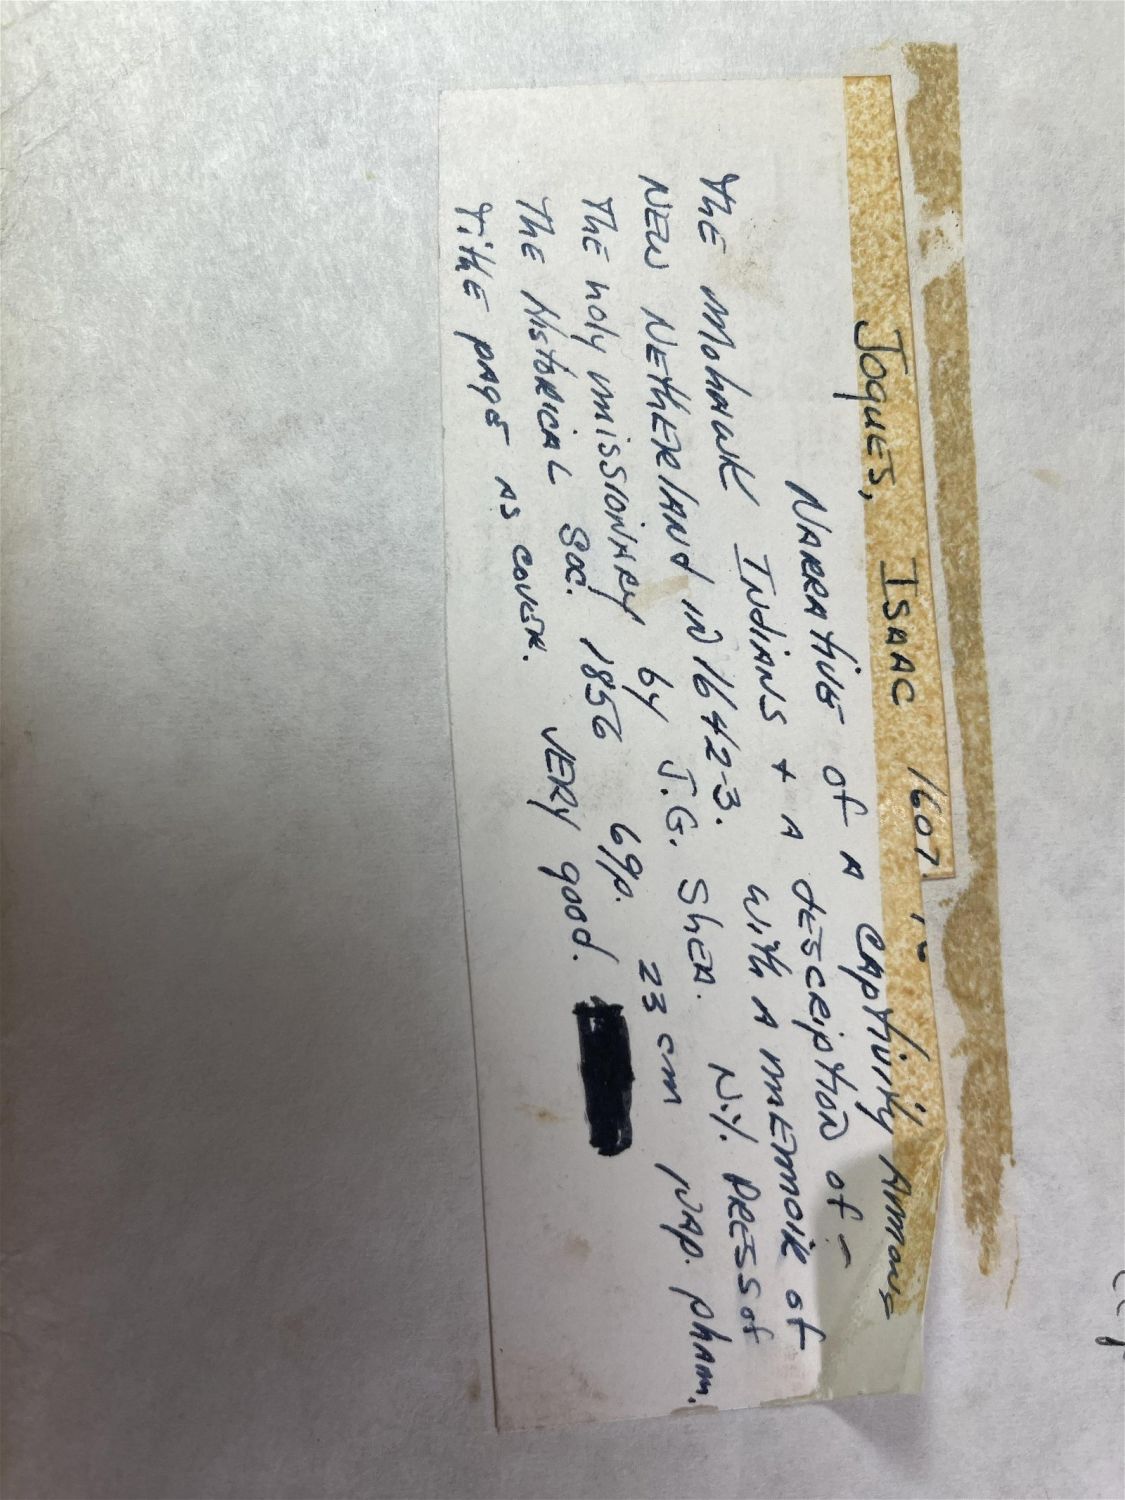 Joques, Isaac 1607.
Narrative of a captivity among
the Mohawk Indians + a description of -
New Netherland in 1642-3. with a memoir of
the holy missionary by J.G. Shea. N.Y. Press of
the Historical Soc. 1856 69p. 23 cm Nap. pham.
Title page as cover. Very good.